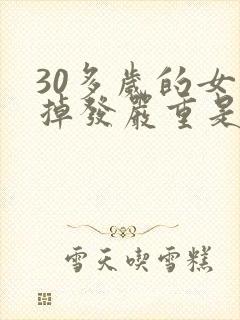 30多歲的女
掉發嚴重是
雪天喫雪糕